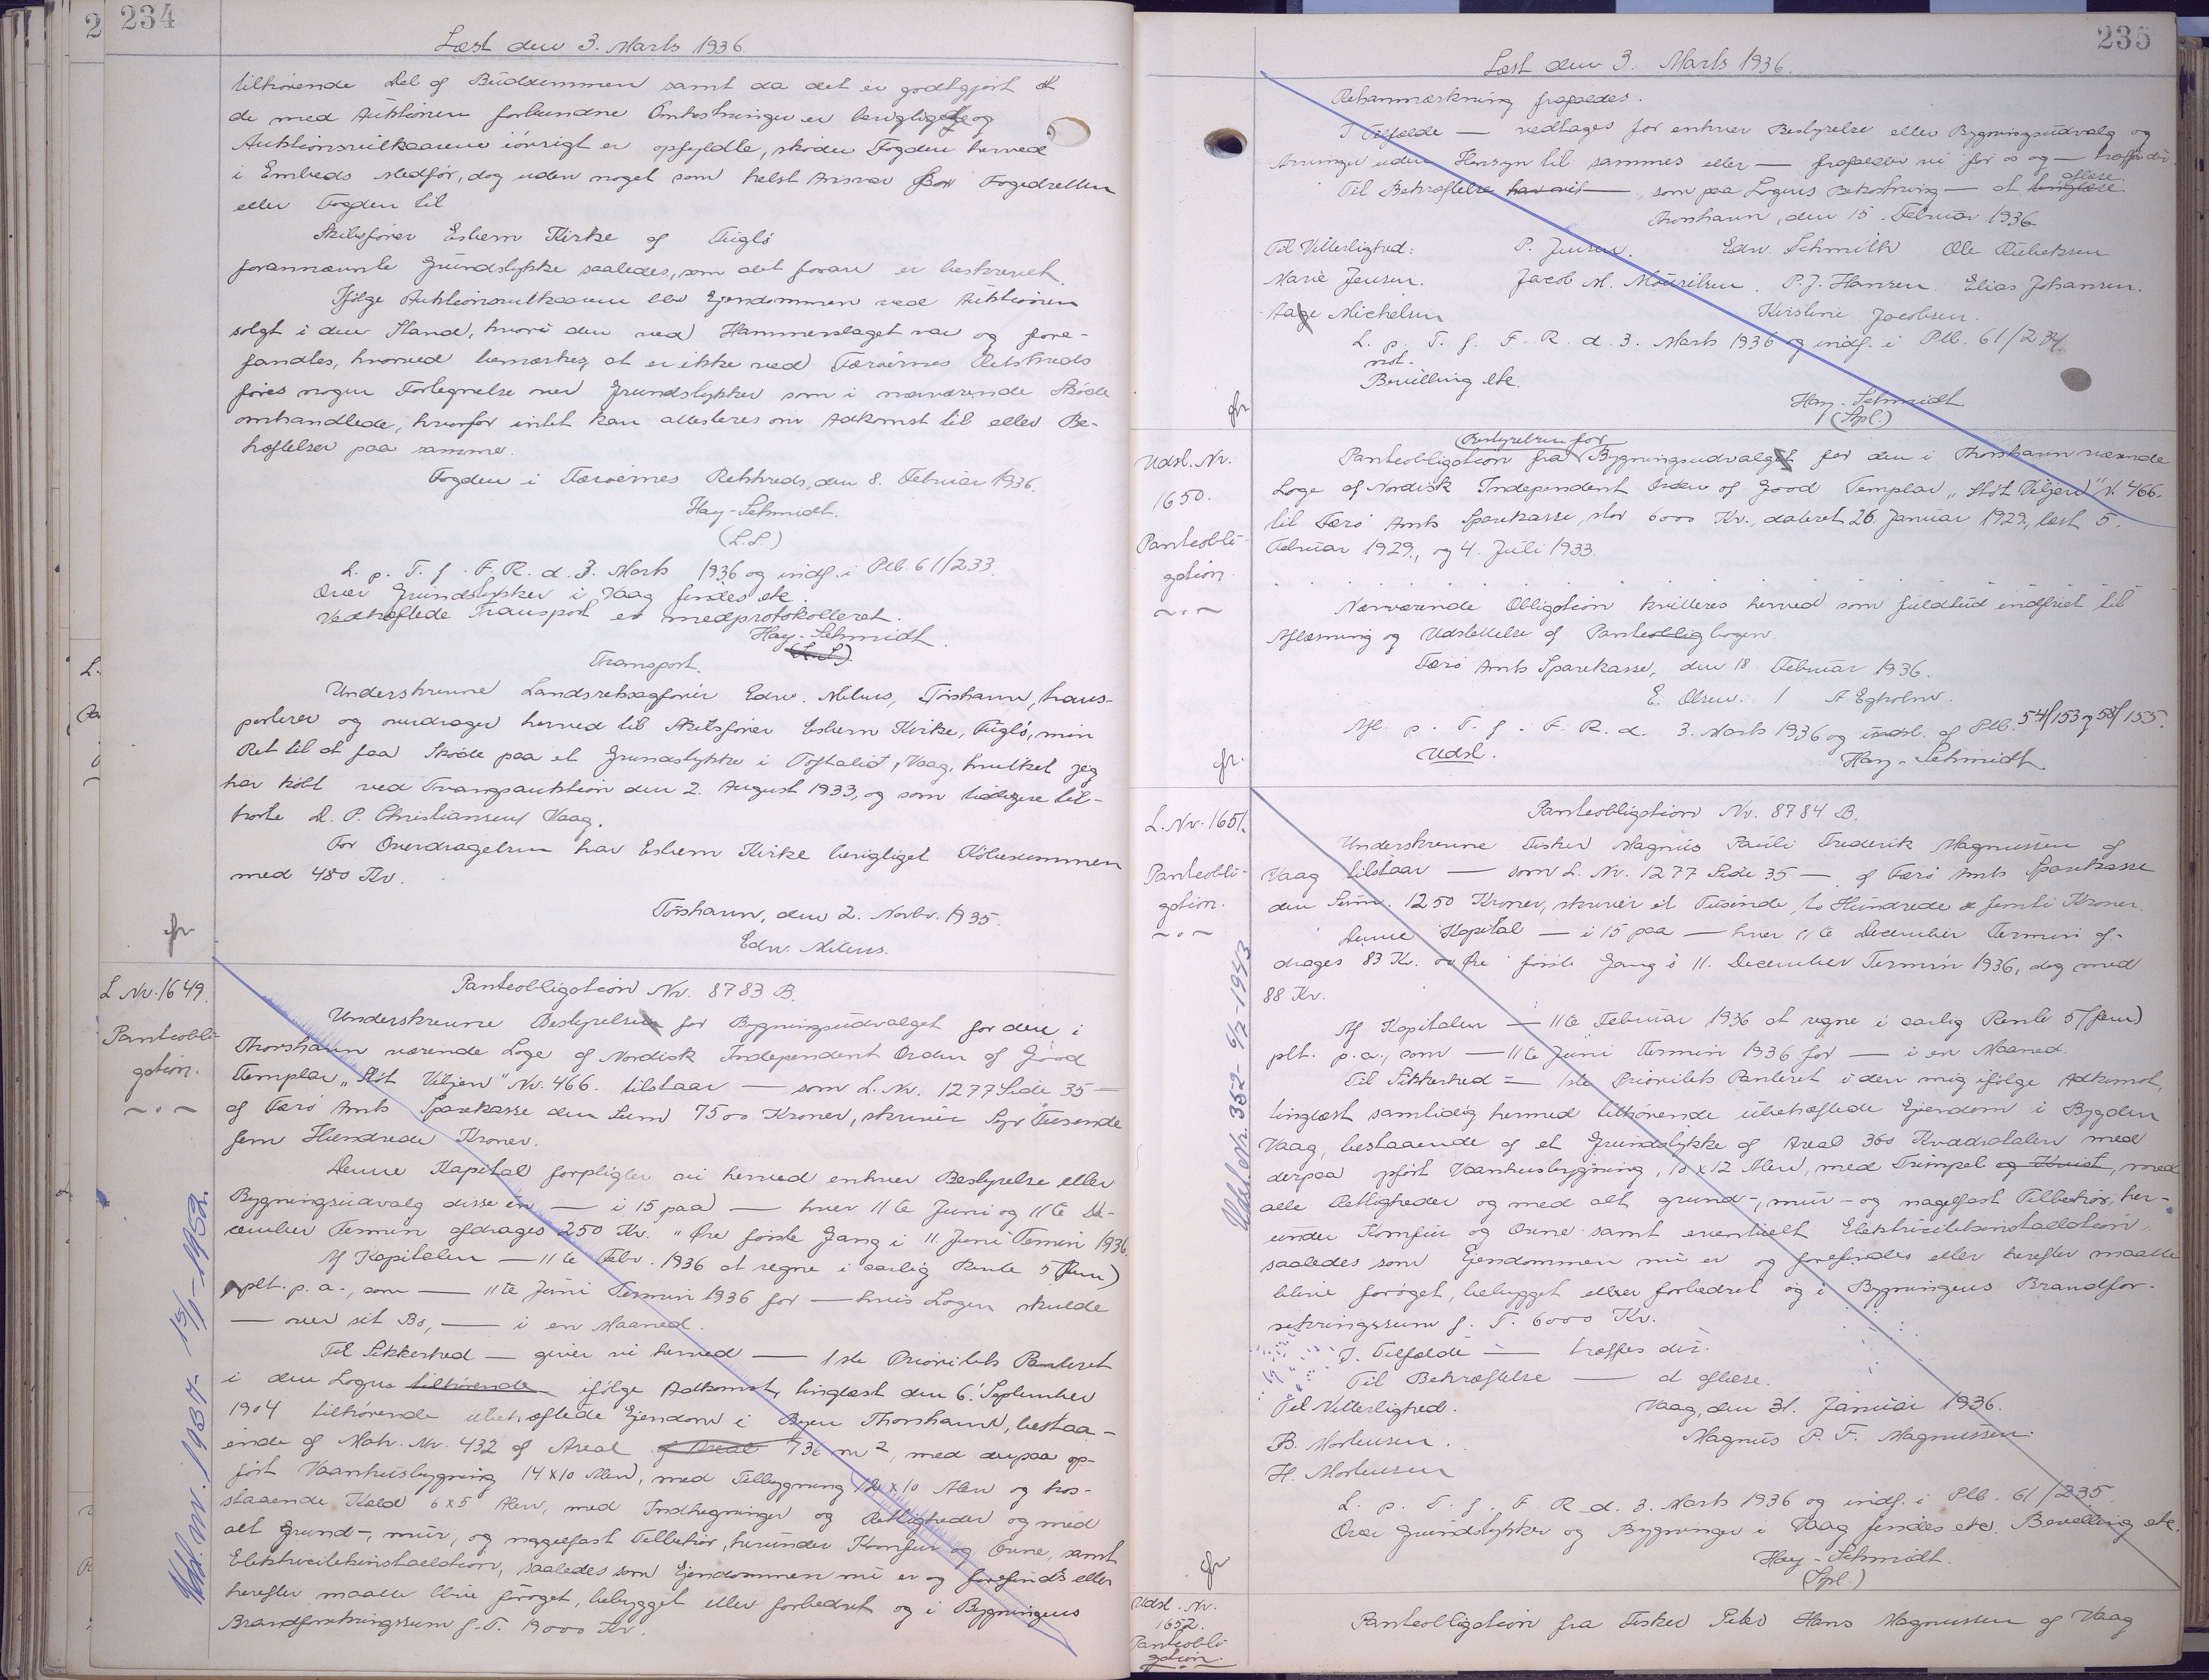 234
Læst den 3. Marts 1936.
tilhørende Del af Budsummen samt da det er godtgjort at
de med Auktionen forbundne Omkostninger er berigtigede og
Auktionsvilkaarene iøvrigt er opfyldte, skøder Fogden herved
i Embeds Medfør, dog uden noget som helst Ansvar for Fogedretten
eller Fogden til
Skibsfører Esbern Kirke af Fuglø
forannævnte Grundstykke saaledes, som det foran er beskrevet.
Ifølge Auktionsvilkaarene blev Ejendommen ved Auktionen
solgt i den Stand, hvori den ved Hammerslaget var og fore-
fandtes, hvorved bemærkes, at er ikke ved Færøernes Retskreds
føres nogen Fortegnelse over Grundstykker som i nærværende Skøde
omhandlede, hvorfor intet kan attesteres om Adkomst til eller Be-
hæftelser paa samme.
Fogden i Færøernes Retskreds, den 8. Februar 1936.
Hay-Schmidt.
(L.S)
L. p. T. f. F. R. d. 3. Marts 1936 og indf. i Ptb. 61/233.
Over Grundstykker i Vaag findes etc.
Vedhæftede Transport er medprotokolleret.
Hay-Schmidt.
(L.S)
Transport.
Underskrevne Landsretssagfører Edw. Mitens, Torshavn, trans-
porterer og overdrager herved til Skibsfører Esbern Kirke, Fuglø, min
Ret til at faa Skøde paa et Grundstykke i Toftalid, Vaag, hvilket jeg
har købt ved Tvangsauktion den 2. August 1933, og som tidligere til-
hørte D. P. Christiansen, Vaag.
For Overdragelsen har Esbern Kirke berigtiget Købesummen
med 480 Kr.
Torshavn, den 2. Novbr. 1935.
Edw. Mitens.
L Nr. 1649.
Panteobli-
gation.
Udsl. nr. 1967- 15/11-1952.
Panteobligation Nr. 8783 B.
Underskrevne Bestyrelse for Bygningsudvalget for den i
Thorshavn værende Loge af Nordisk Independent Orden of Good
Templar "Støt Viljen" Nr. 466. tilstaar — som L. Nr. 1277 Side 35 —
af Færø Amts Sparekasse den Sum 7500 Kroner, skriver Syv Tusinde
fem Hundrede Kroner.
Denne Kapital forpligter vi herved enhver Bestyrelse eller
Bygningsudvalg disse én — i 15 paa — hver 11te Juni og 11te De-
cember Termin afdrages 250 Kr. " Øre første Gang i 11. Juni Temin 1936.
Af Kapitalen — 11te Febr. 1936 at regne i aarlig Rente 5 (fem)
pCt. p. a., som — 11te Juni Termin 1936 for — hvis Logen skulde
— over sit Bo, — i en Maaned.
Til Sikkerhed — giver vi herved — 1ste Prioritets Panteret
i den Logen tilhørende ifølge Adkomst, tinglæst den 6. September
1904 tilhørende ubehæftede Ejendom i Byen Thorshavn, bestaa-
ende af Matr. Nr. 432 af Areal af Areal 736 m², med derpaa op-
ført Vaanhusbygning 14 x 10 Alen, med Tilbygning 12 x 10 Alen og hos-
staaende Kæld 6 x 5 Alen, med Indhegninger og Rettigheder og med
alt Grund-, mur, og nagelfast Tilbehør, herunder Komfur og Ovne, samt
Elektricitetsinstallation, saaledes som Ejendommen nu er og forefinds eller
herefter maatte blive forøget, bebygget eller forbedret og i Bygningens
Brandforsikringssum f. T. 19000 Kr.
235
Læst den 3. Marts 1936.
Retsanmærkning frafaldes.
I Tilfælde — vedtages for enhver Bestyrelse eller Bygningsudvalg og
Arvinger uden Hensyn til sammes eller — frafalder vi for os og — træffe dir.
Til Bekræftelse har vi — , som paa Logens Bekostning — at tinglæse aflæse.
Thorshavn, den 15. Februar 1936
Til Vitterlighed: P. Jensen. Edw. Schmith Ole Rubeksen
Marie Jensen. Jacob M. Mouritsen. P. J. Hansen. Elias Johansen.
Aage Michelsen Kristine Jacobsen.
L. p. T. f. F. R. d. 3. Marts 1936 og indf. i Ptb. 61/234.
not.
Bevilling etc.
Hay-Schmidt
(Spl.)
Udsl. Nr.
1650.
Panteobli-
gation.
Panteobligation fra Bestyrelsen for Bygningsudvalget for den i Thorshavn værende
Loge af Nordisk Independent Orden of Good Templar "Støt Viljen" N. 466.
til Færø Amts Sparekasse, stor 6000 Kr., dateret 26. Januar 1929, læst 5.
Februar 1929, og 4. Juli 1933.
Nærværende Obligation kvitteres herved som fuldtud indfriet til
Aflæsning og Udslettelse af Panteobligbogen.
Færø Amts Sparekasse, den 18. Februar 1936.
E. Olsen. / A Egholm.
Afl. p. T. f. F. R. d. 3. Marts 1936 og udsl. af Ptb. 54/153 og 58/155.
Udsl. Hay-Schmidt.
L. Nr. 1651.
Panteobli-
gation.
Udsl. Nr. 352- 6/7-1943
Panteobligation Nr. 8784 B.
Underskrevne Fisker Magnus Pauli Frederik Magnussen af
Vaag tilstaar — som L. Nr. 1277 Side 35 — af Færø Amts Sparekasse
den Sum. 1250 Kroner, skriver et Tusinde to Hundrede og femti Kroner.
Denne Kapital — i 15 paa — hver 11te December Termin af-
drages 83 Kr. oo Øre første Gang i 11. December Termin 1936, dog med
88 Kr.
Af Kapitalen — 11te Februar 1936 at regne i aarlig Rente 5 (fem)
pCt. p. a., som — 11te Juni Termin 1936 for — i en Maaned.
Til Sikkerhed — 1ste Prioritets Panteret i den mig ifølge Adkomst,
tinglæst samtidig hermed tilhørende ubehæftede Ejendom i Bygden
Vaag, bestaaende af et Grundstykke af Areal 360 Kvadratalen med
derpaa opført Vaanhusbygning, 10 x 12 Alen, med Trimpel og Kvist, med
alle Rettigheder og med alt grund-, mur- og nagelfast Tilbehør, her-
under Komfur og Ovne samt eventuelt Elektricitetsinstallation,
saaledes som Ejendommen nu er og forefindes eller herefter maatte
blive forøget, bebygget eller forbedret og i Bygningens Brandfor-
sikringssum f. T. 6000 Kr.
I. Tilfælde — træffes dir.
Til Bekræftelse — at aflæse.
Til Vitterlighed. Vaag, den 31. Januar 1936.
B. Mortensen. Magnus P. F. Magnussen.
H. Mortensen
L. p. T. f. F R d. 3. Marts 1936 og indf. i Ptb. 61/235.
Over Grundstykker og Bygninger i Vaag findes etc. Bevilling etc.
Hay-Schmidt.
(Spl.)
Udsl. Nr.
1652.
Panteobli-
gation.
Panteobligation fra Fisker Peter Hans Magnussen af Vaag